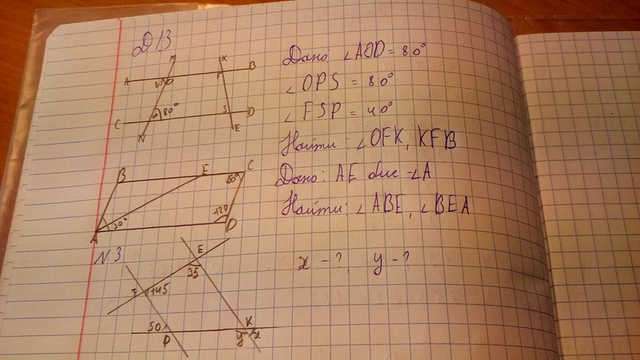 Д/З
Дано ∠AOD = 80°
∠OPS = 80°
∠FSP = 40°
Найти: ∠OFK, KFB
Дано: AE бис ∠A
Найти: ∠ABE, ∠BEA
x - ? y - ?
M K
A B
F
80°
C S D
N E
B E C
60°
30° 120
A D
N 3
E
35
145
50 K
P y x